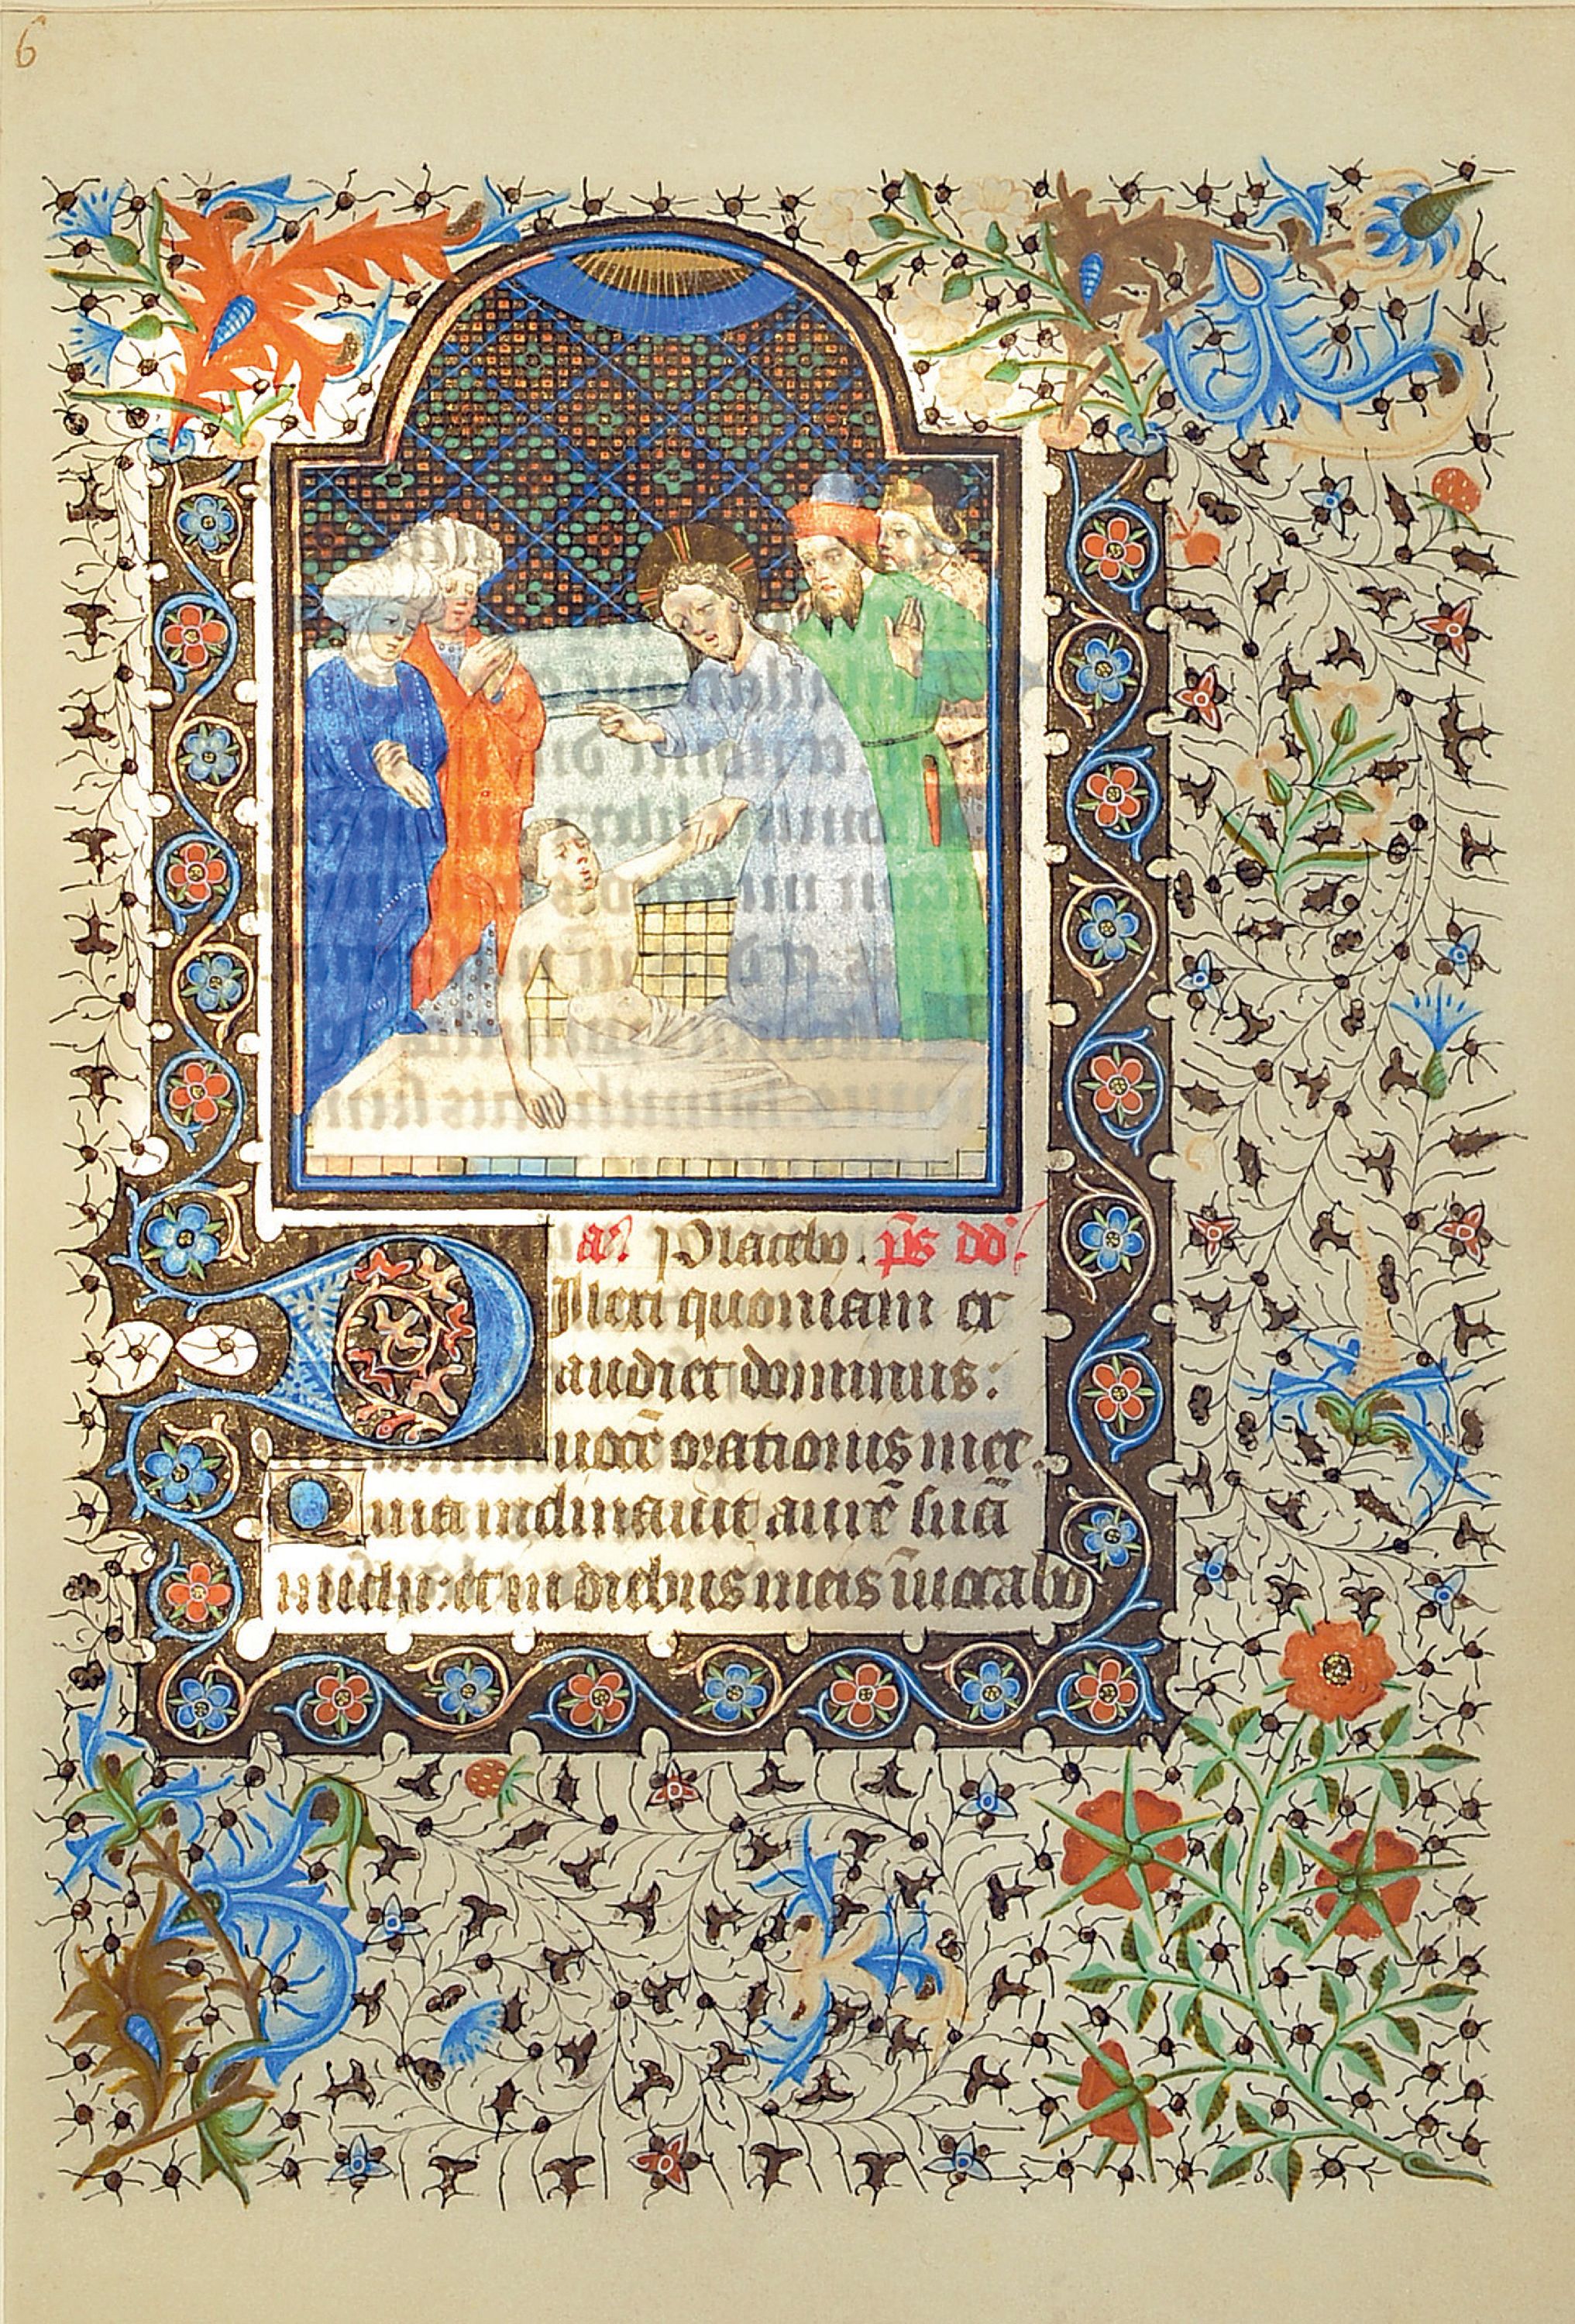 6
añ. Placebo. p̄s dd̄.
Dilexi quoniam ex
audiet dominus:
uocē orationis mee.
Quia inclinauit aurē suā
michi: et in diebus meis īuocabo